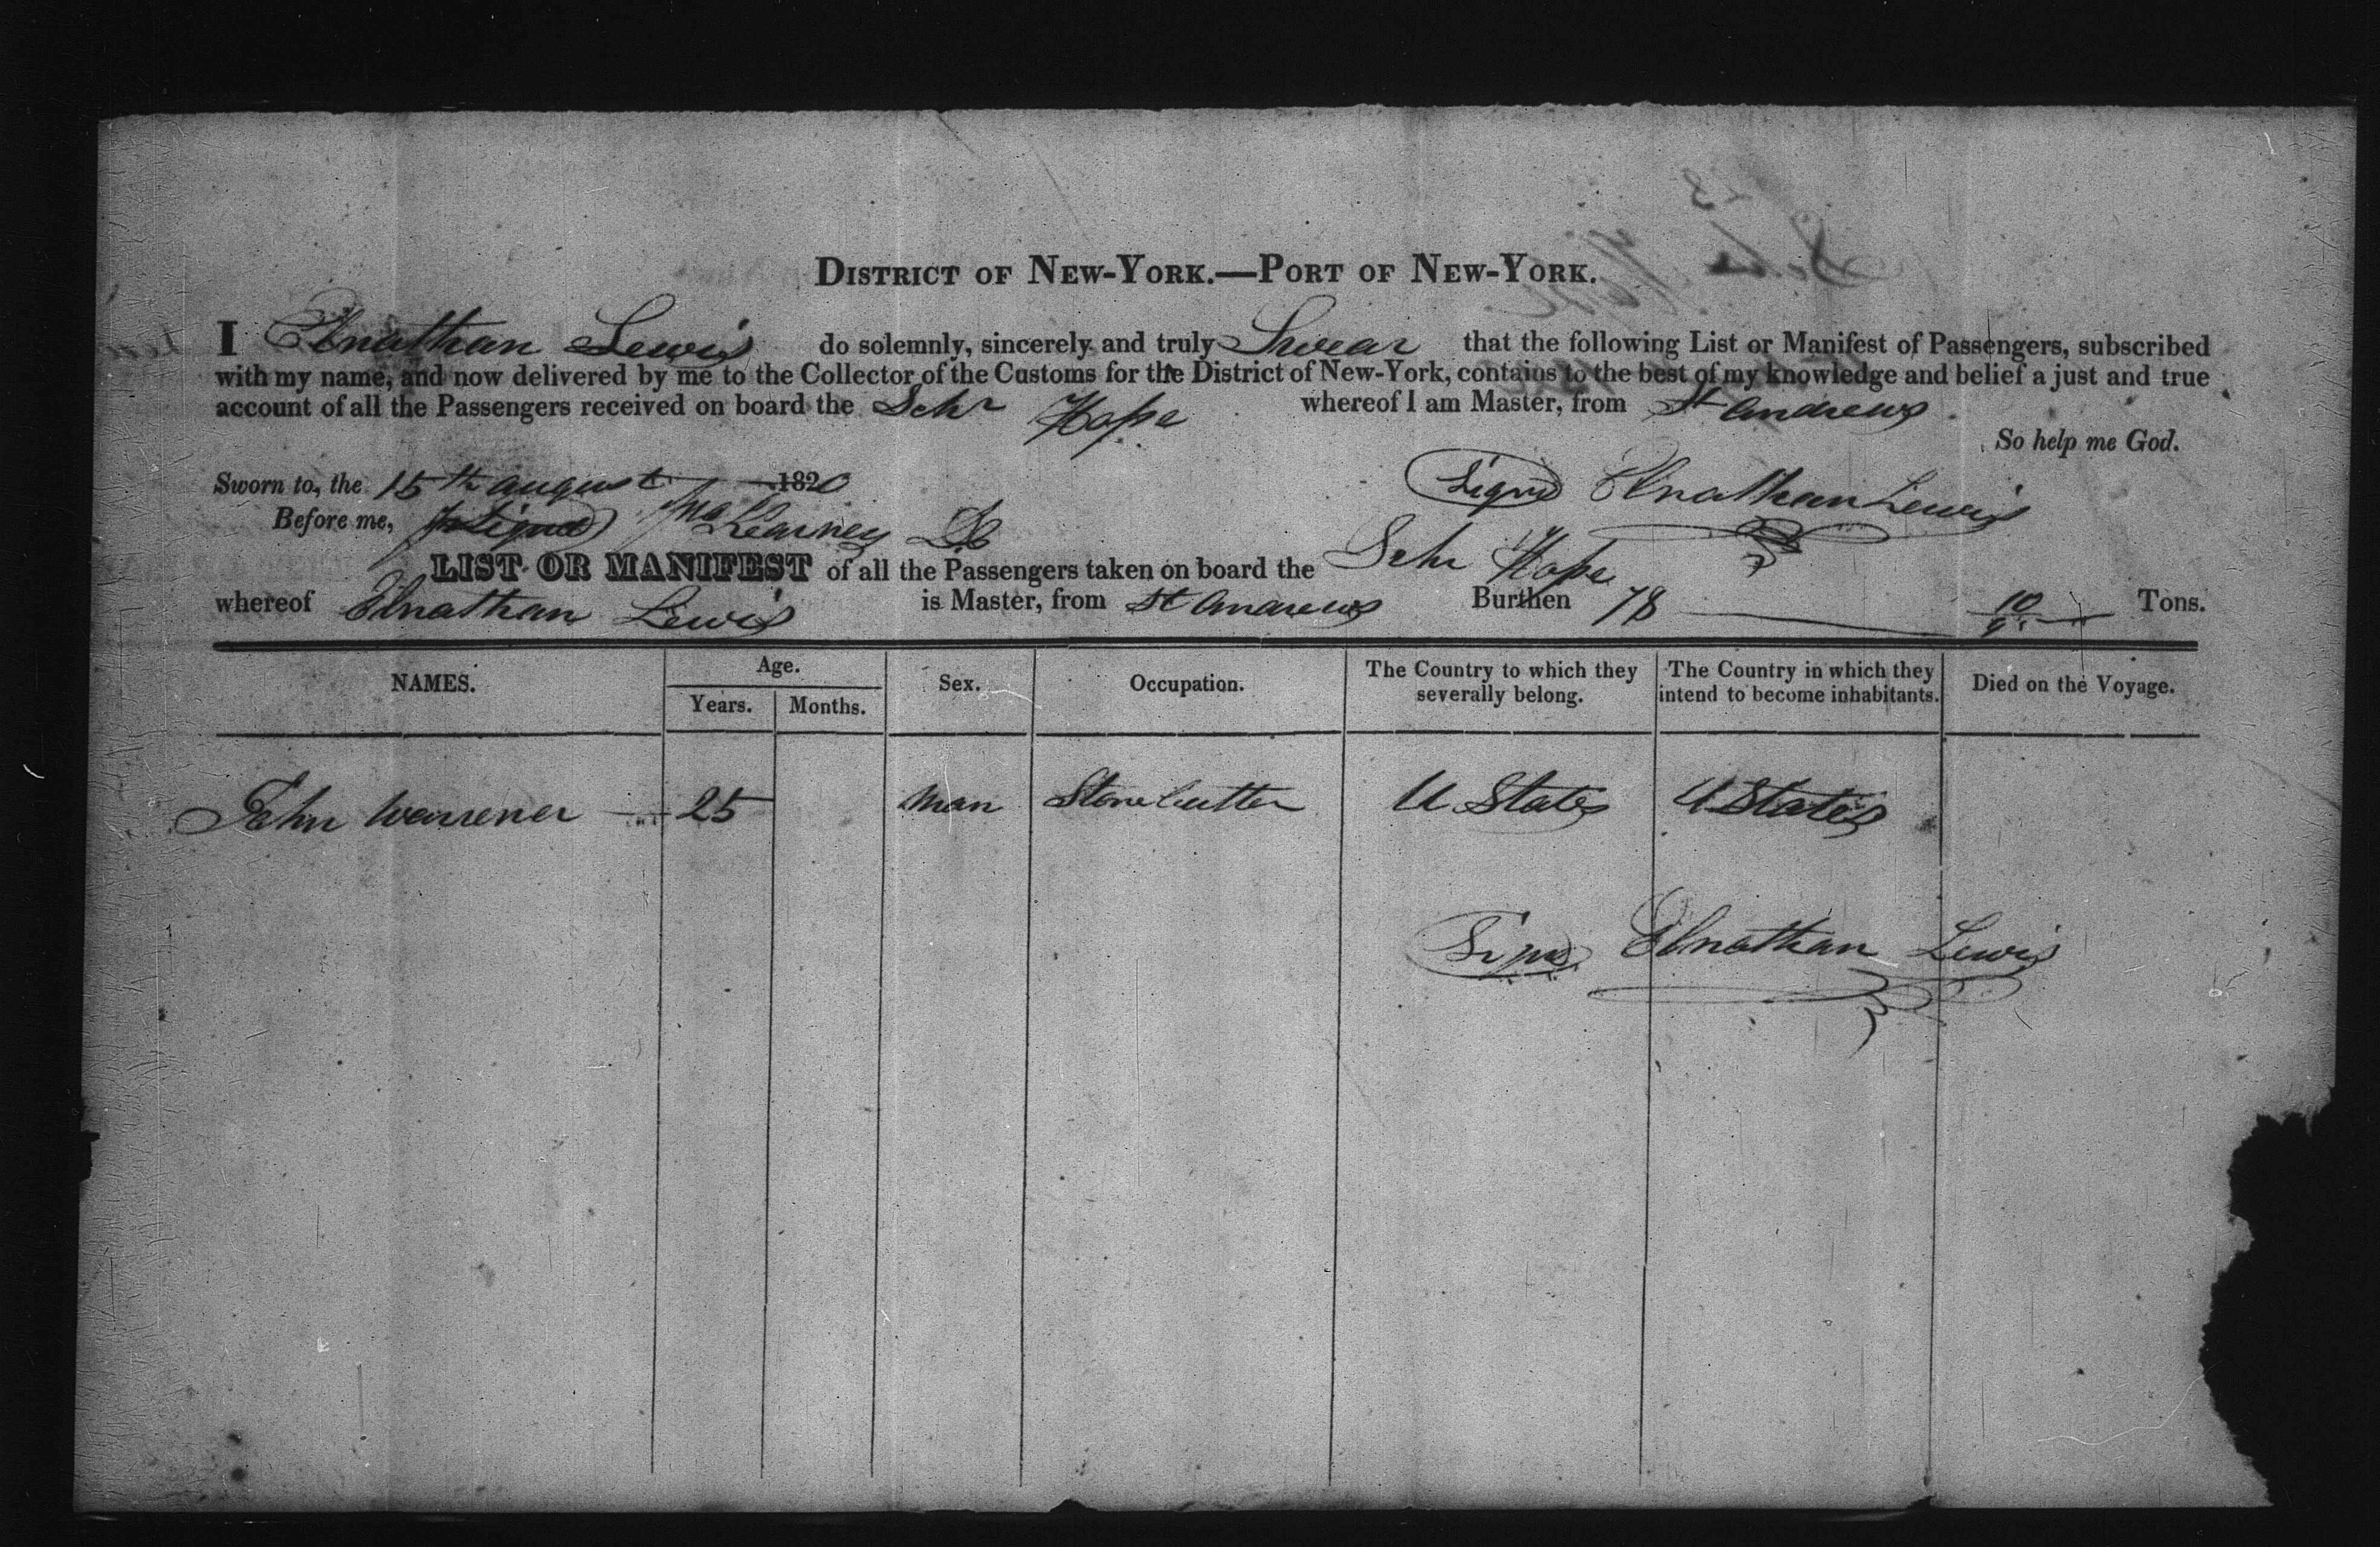 DISTRICT OF NEW-YORK.—PORT OF NEW-YORK.
I Elnathan Lewis do solemnly, sincerely and truly Swear that the following List or Manifest of Passengers, subscribed
with my name, and now delivered by me to the Collector of the Customs for the District of New-York, contains to the best of my knowledge and belief a just and true
account of all the Passengers received on board the Schr Hope whereof I am Master, from St Andrews
So help me God.
Sworn to, the 15th august 1820
Signd Elnathan Lewis
Before me,
LIST OR MANIFEST of all the Passengers taken on board the Schr Hope
whereof Elnathan Lewis is Master, from St Andrews Burthen 78 Tons.
NAMES. Age. Years. Months. Sex. Occupation. The Country to which they severally belong. The Country in which they intend to become inhabitants. Died on the Voyage.
John Warrener 25 man Stone Cutter U States U States
Signd Elnathan Lewis